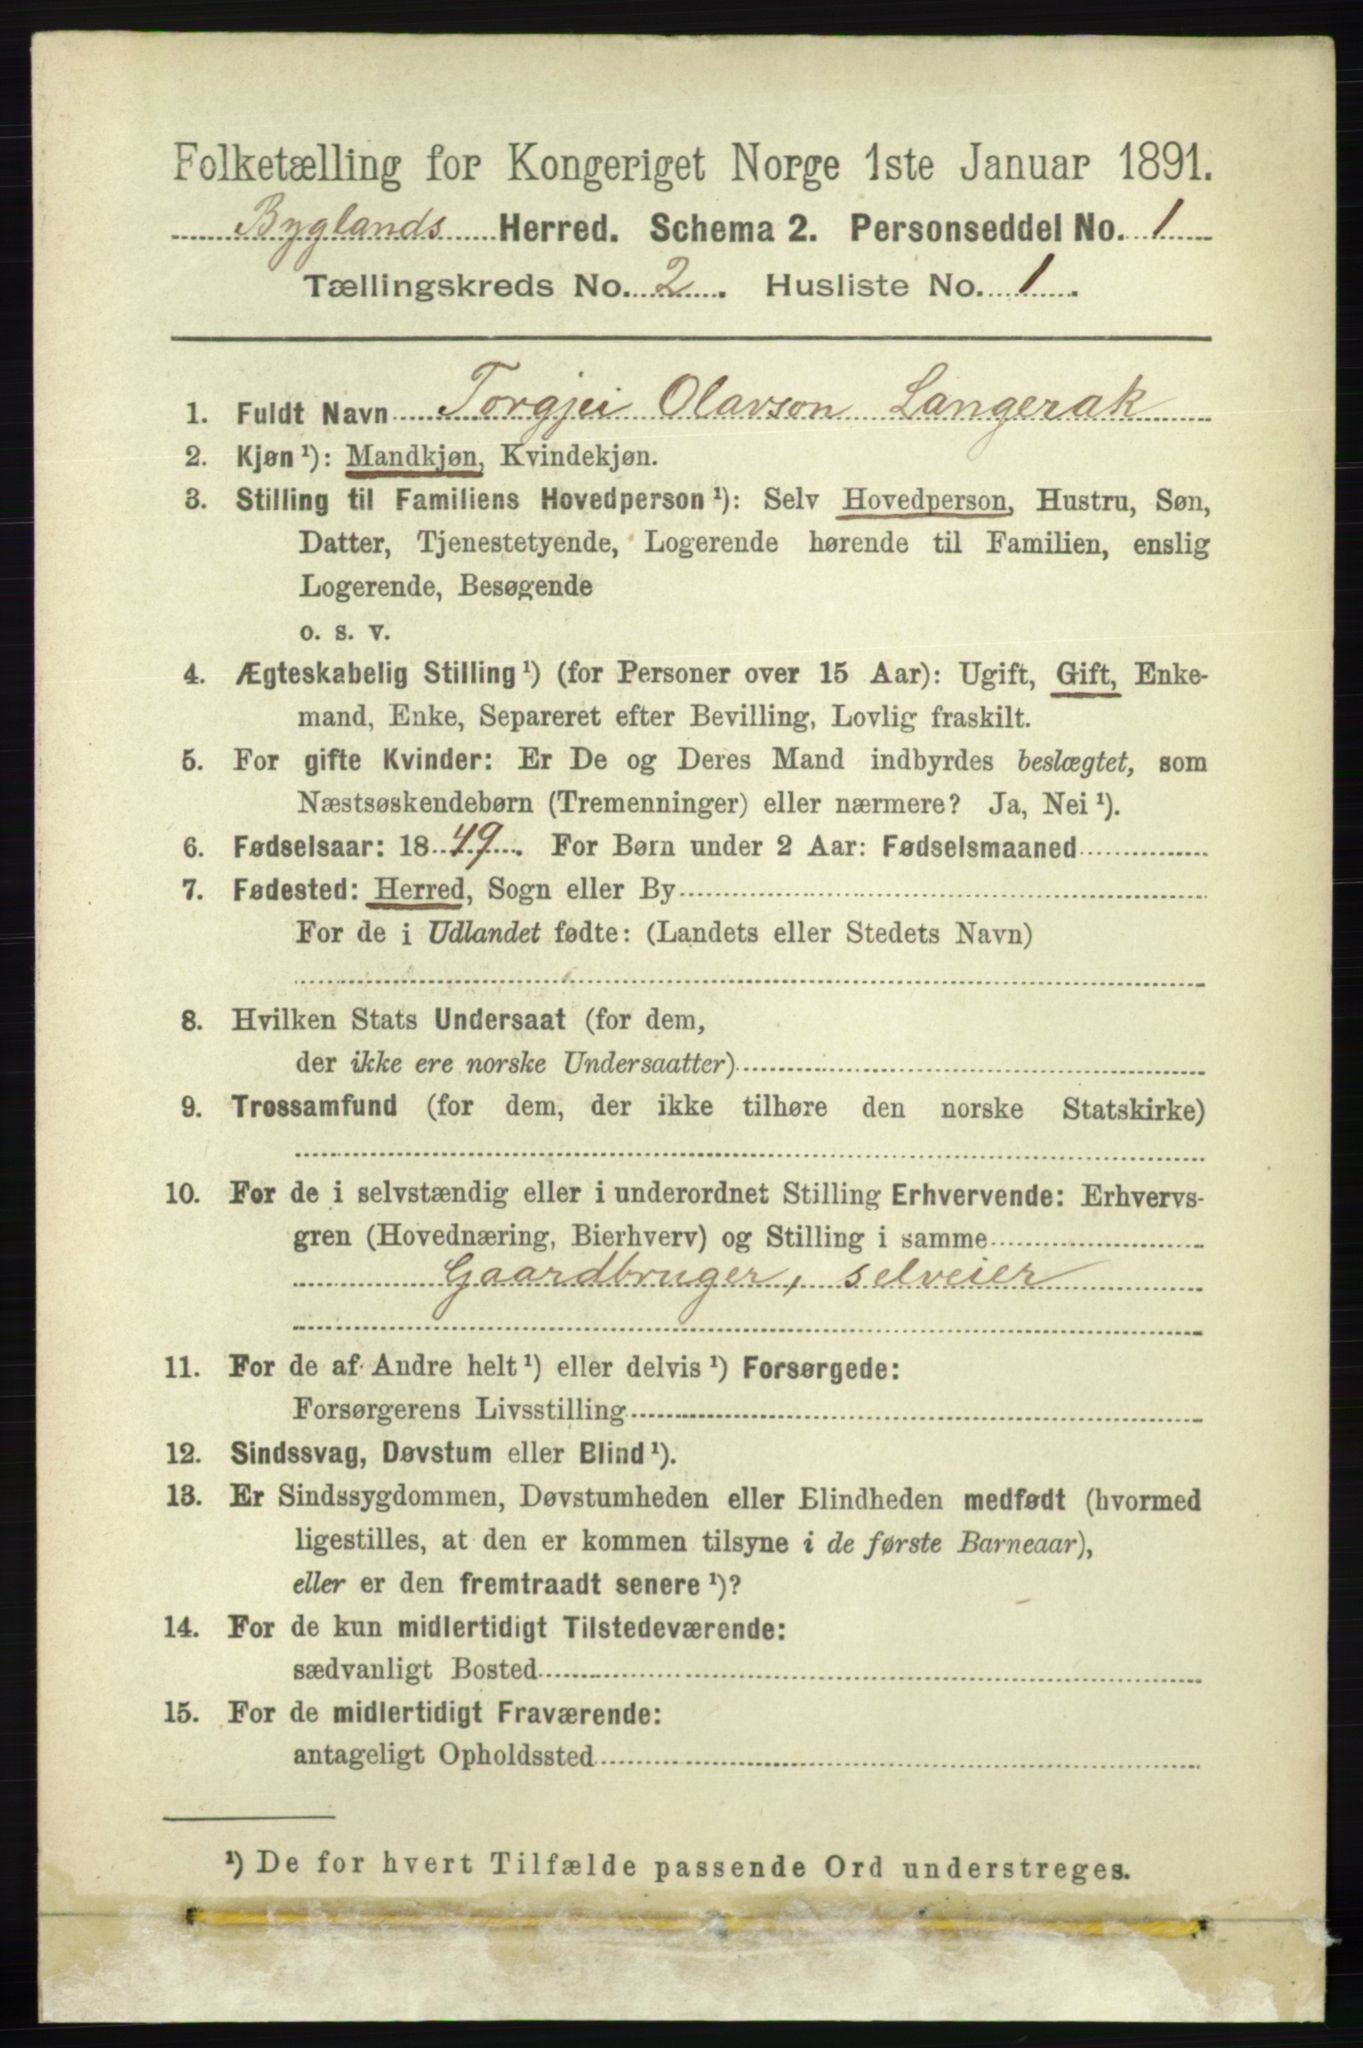 Folketælling for Kongeriget Norge 1ste Januar 1891.
Byglands Herred. Schema 2. Personseddel No. 1
Tællingskreds No. 2. Husliste No. 1.
1. Fuldt Navn Torgjei Olavson Langerak
2. Kjøn¹): Mandkjøn, Kvindekjøn.
3. Stilling til Familiens Hovedperson¹): Selv Hovedperson, Hustru, Søn,
Datter, Tjenestetyende, Logerende hørende til Familien, enslig
Logerende, Besøgende
o. s. v.
4. Ægteskabelig Stilling¹) (for Personer over 15 Aar): Ugift, Gift, Enke-
mand, Enke, Separeret efter Bevilling, Lovlig fraskilt.
5. For gifte Kvinder: Er De og Deres Mand indbyrdes beslægtet, som
Næstsøskendebørn (Tremenninger) eller nærmere? Ja, Nei¹).
6. Fødselsaar: 1849. For Børn under 2 Aar: Fødselsmaaned
7. Fødested: Herred, Sogn eller By
For de i Udlandet fødte: (Landets eller Stedets Navn)
8. Hvilken Stats Undersaat (for dem,
der ikke ere norske Undersaatter)
9. Trossamfund (for dem, der ikke tilhøre den norske Statskirke)
10. For de i selvstændig eller i underordnet Stilling Erhvervende: Erhvervs-
gren (Hovednæring, Bierhverv) og Stilling i samme
Gaardbruger, selveier
11. For de af Andre helt¹) eller delvis¹) Forsørgede:
Forsørgerens Livsstilling
12. Sindssvag, Døvstum eller Blind¹).
13. Er Sindssygdommen, Døvstumheden eller Blindheden medfødt (hvormed
ligestilles, at den er kommen tilsyne i de første Barneaar),
eller er den fremtraadt senere¹)?
14. For de kun midlertidigt Tilstedeværende:
sædvanligt Bosted
15. For de midlertidigt Fraværende:
antageligt Opholdssted
¹) De for hvert Tilfælde passende Ord understreges.